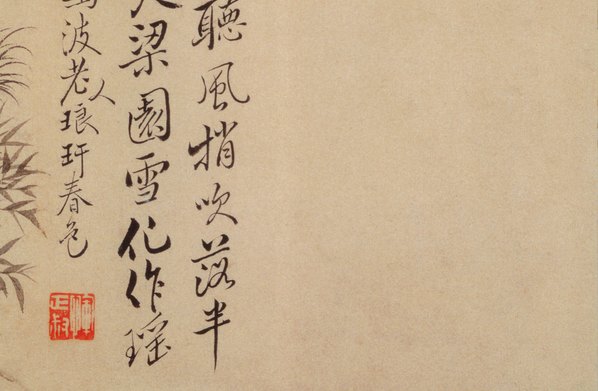 聽風梢吹落半
梁園雪化作瑶
波老人琅玕春色